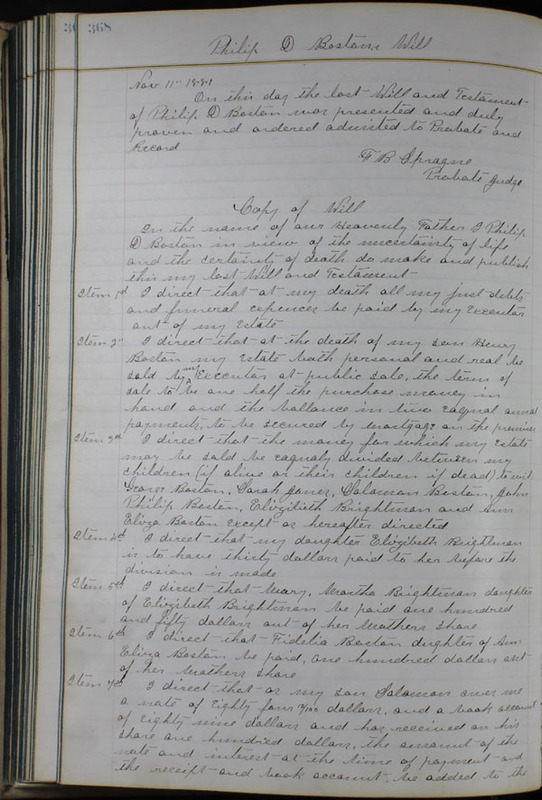 368
Philip D Bostons Will
Nov 11th 1881
On this day the last Will and Testament
of Philip D Boston was presented and duly
proven and ordered admitted to Probate and
Record
F B Sprague
Probate Judge
Copy of Will
In the name of our Heavenly Father I Philip
D Boston in view of the uncertainty of life
and the certainty of death do make and publish
this my last Will and Testament
Item 1st I direct that at my death all my just debts
and funeral expences be paid by my Executor
out of my Estate
Item 2d I direct that at the death of my son Henry
Boston my Estate both personal and real be
sold by my Executor at public sale, the term of
sale to be one half the purchase money in
hand and the ballance in two eaqual annual
payments, to be secured by mortgage on the premises
Item 3rd I direct that the money for which my Estate
may be sold be eaqualy divided between my
children (if alive or their children if dead) to wit
George Boston, Sarah Jones, Salaman Boston, John
Philip Boston, Elizibeth Brightman and Ann
Eliza Boston except as hereafter directed
Item 4th I direct that my daughter Elizibeth Brightman
is to have thirty dollars paid to her before the
division is made
Item 5th I direct that Mary, Martha Brightman daughter
of Elizibeth Brightman be paid one hundred
and fifty dollars out of her Mothers share
Item 6th I direct that Fidelia Boston dughter of Ann
Eliza Boston be paid, one hundred dollars out
of her Mothers share
Item 7th I direct that as my son Salaman owes me
a note of Eighty four /100 dollars, and a book account
of Eighty nine dollars and has received on his
share one hundred dollars, the amount of the
note and interest at the time of payment and
the receipt and book account, be added to the